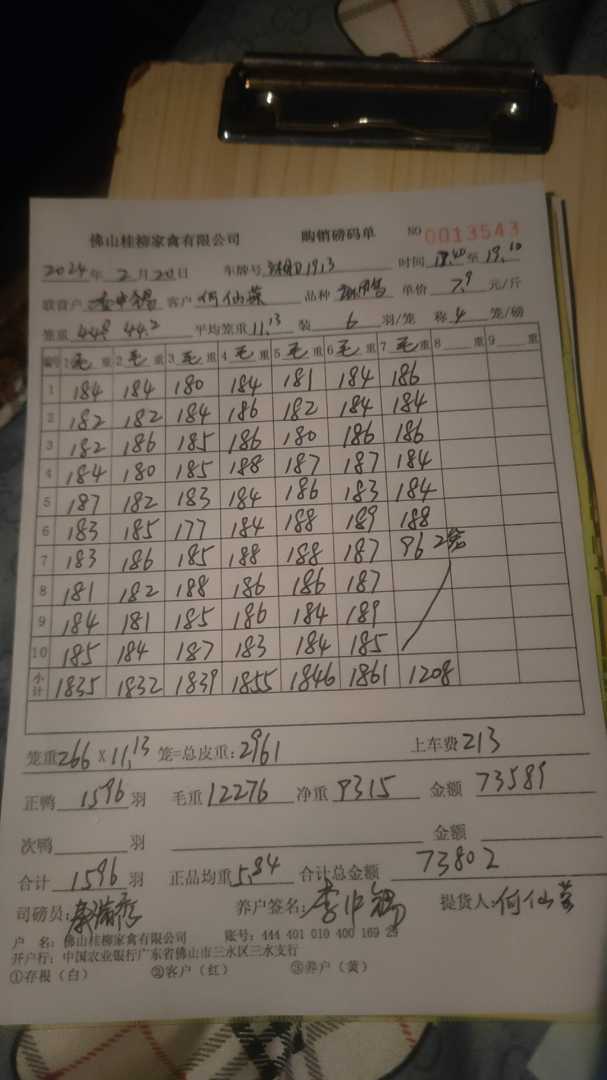 佛山桂柳家禽有限公司 购销磅码单 NO 0013543
2024年2月20日 车牌号 1913 时间 至19:10
客户 何仙荣 品种 单价 7.9 元/斤
笼重 44.8 44.2 平均笼重 11.13 装 6 羽/笼 称 4 笼/磅
编号 1毛重 2毛重 3毛重 4毛重 5毛重 6毛重 7毛重 8 重 9 重
1 184 184 180 184 181 184 186
2 182 182 184 186 182 184 184
3 182 186 185 186 180 186 186
4 184 180 185 188 187 187 184
5 187 182 183 184 186 183 184
6 183 185 177 184 188 189 188
7 183 186 185 188 188 187 96 2笼
8 181 182 188 186 186 187
9 184 181 185 186 184 189
10 185 184 187 183 184 185
小计 1835 1832 1839 1855 1846 1861 1208
笼重266X11.13笼=总皮重:2961 上车费213
正鸭 1596 羽 毛重12276 净重 9315 金额 73589
次鸭 羽 金额
合计 1596 羽 正品均重5.84 合计总金额 73802
司磅员: 养户签名: 提货人:何仙荣
户 名:佛山桂柳家禽有限公司 账号:444 401 010 400 169 29
开户行:中国农业银行广东省佛山市三水区三水支行
①存根(白) ②客户(红) ③养户(黄)